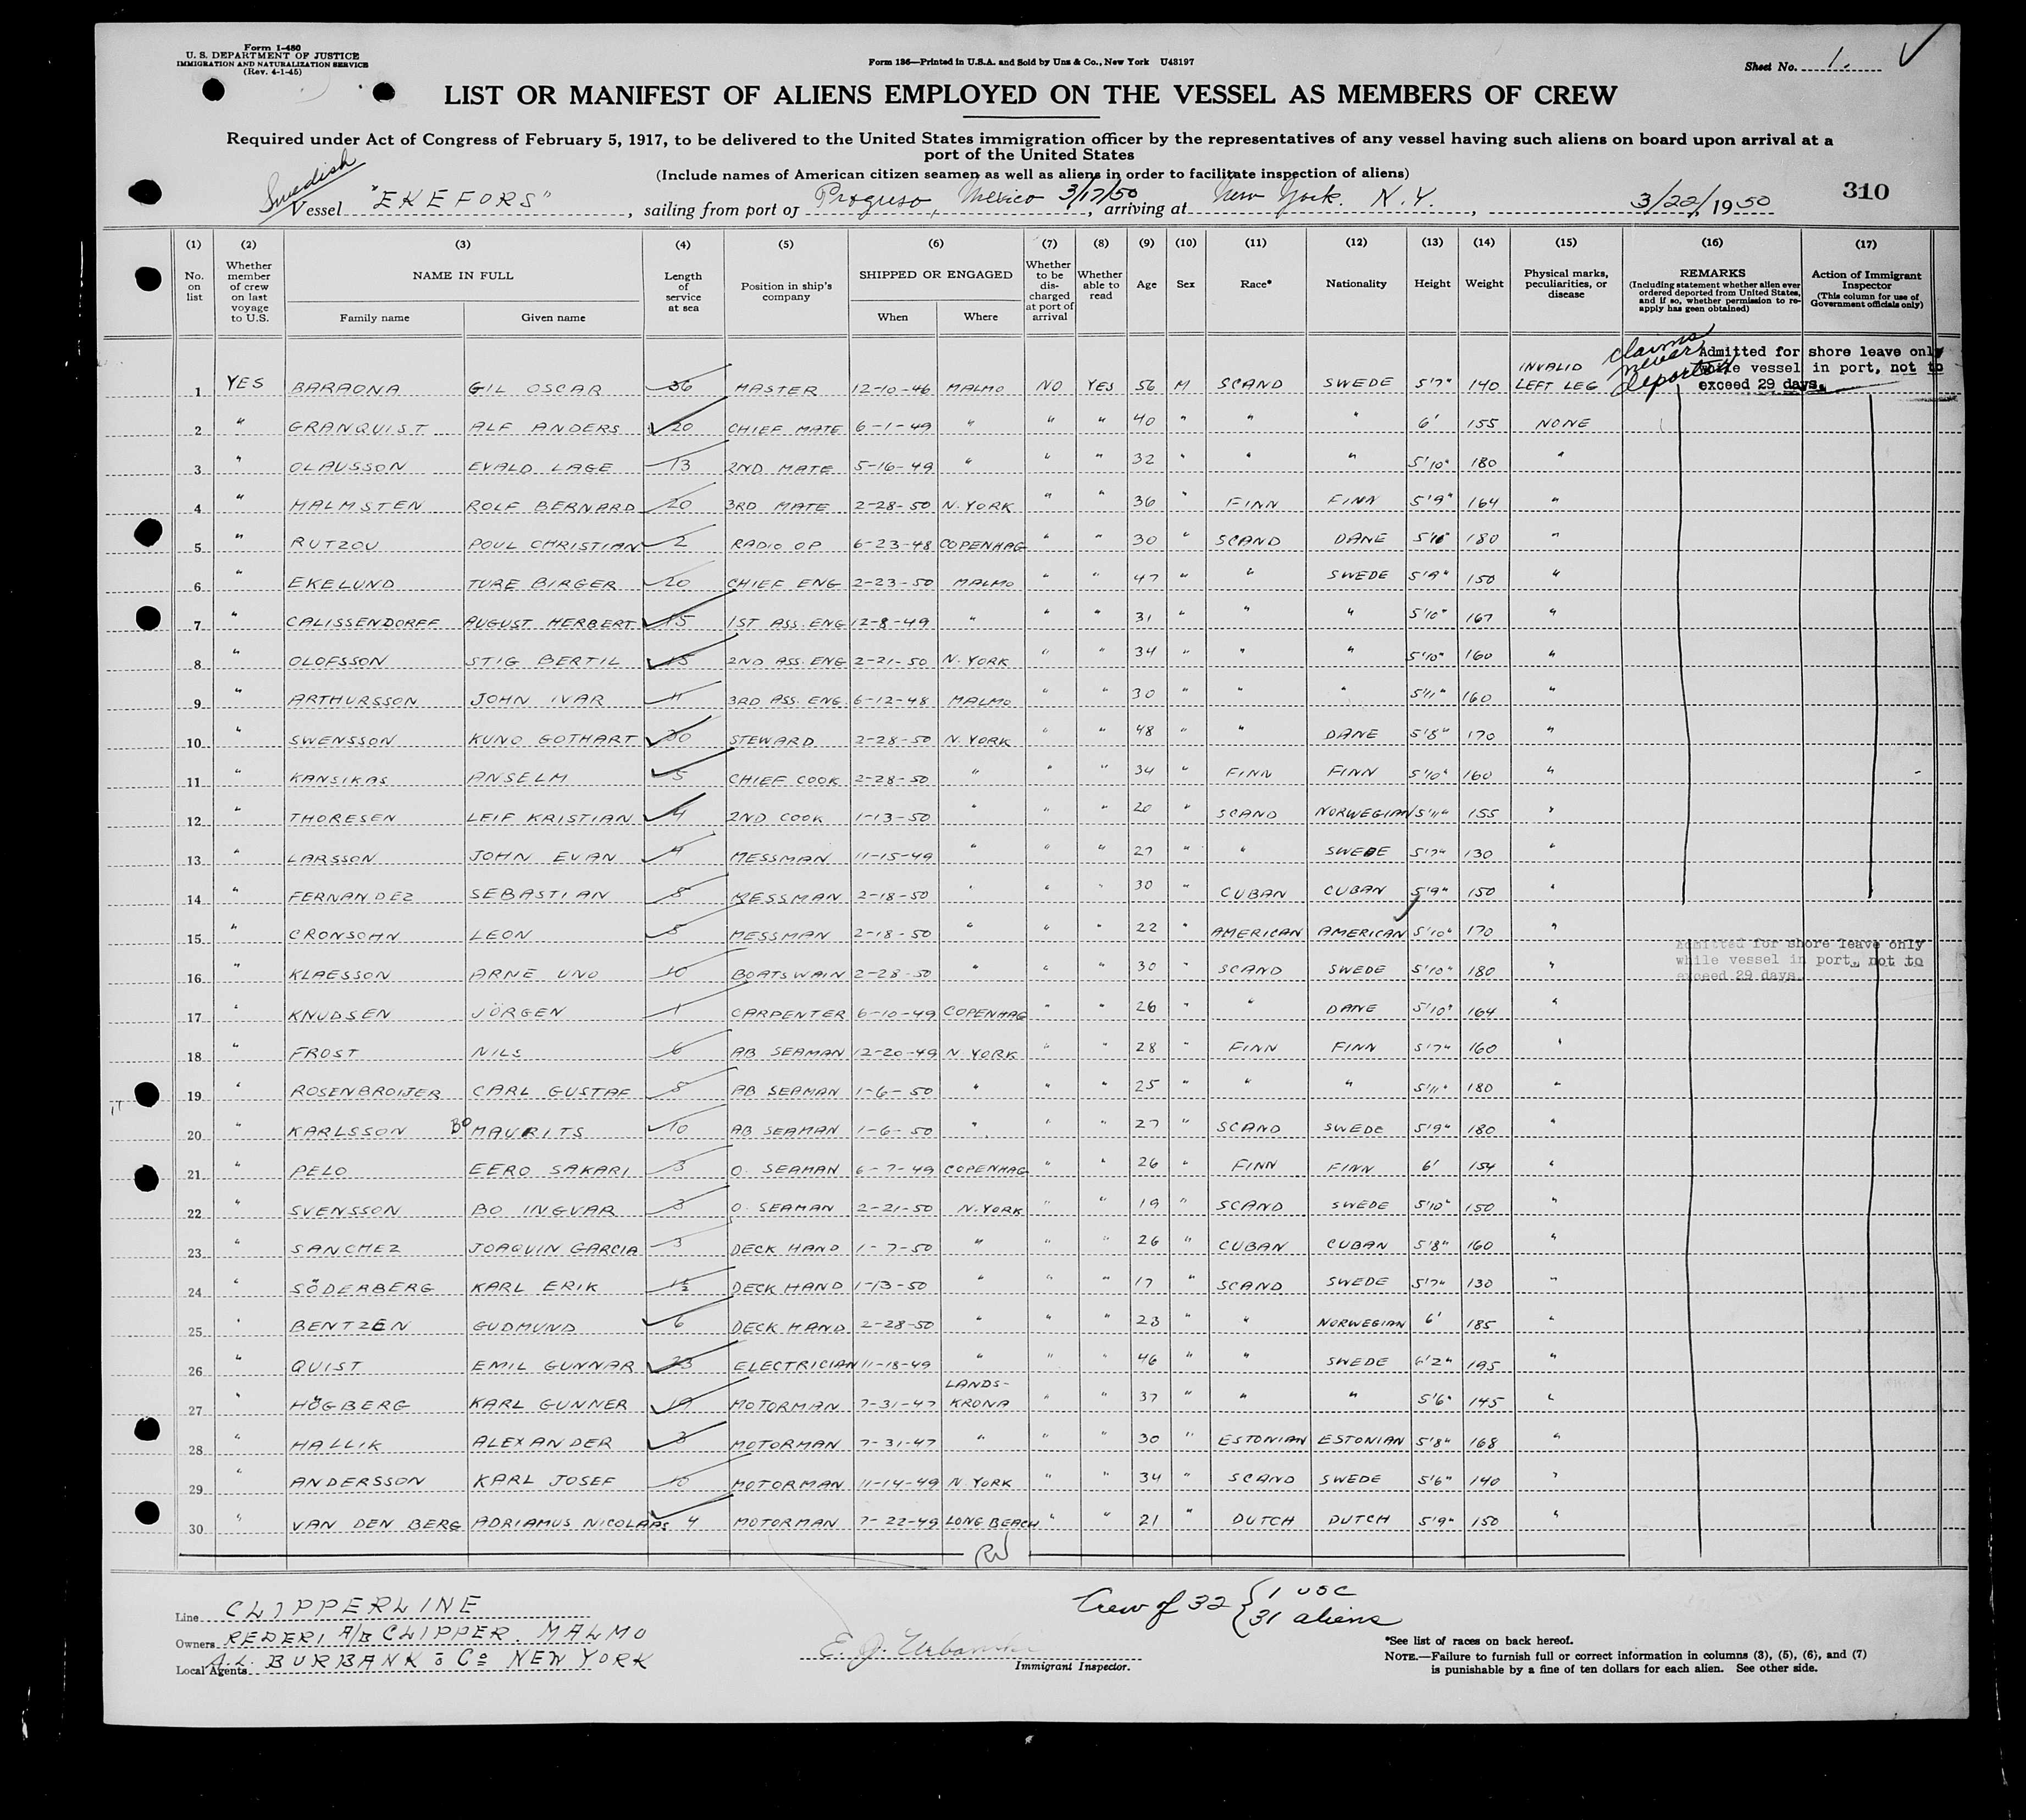 Form I-480
U. S. DEPARTMENT OF JUSTICE
IMMIGRATION AND NATURALIZATION SERVICE
(Rev. 4-1-45)
Form 136—Printed in U.S.A. and Sold by Unz & Co., New York U43197
Sheet No. 1.
LIST OR MANIFEST OF ALIENS EMPLOYED ON THE VESSEL AS MEMBERS OF CREW
Required under Act of Congress of February 5, 1917, to be delivered to the United States immigration officer by the representatives of any vessel having such aliens on board upon arrival at a
port of the United States
(Include names of American citizen seamen as well as aliens in order to facilitate inspection of aliens)
Swedish
Vessel "EKEFORS", sailing from port of Progreso, Mexico 3/17/50, arriving at New York. N.Y., 3/22/, 1950
310
(1) No. on list
(2) Whether member of crew on last voyage to U.S.
(3) NAME IN FULL Family name Given name
(4) Length of service at sea
(5) Position in ship's company
(6) SHIPPED OR ENGAGED When Where
(7) Whether to be discharged at port of arrival
(8) Whether able to read
(9) Age
(10) Sex
(11) Race*
(12) Nationality
(13) Height
(14) Weight
(15) Physical marks, peculiarities, or disease
(16) REMARKS (Including statement whether alien ever ordered deported from United States, and if so, whether permission to re-apply has geen obtained)
(17) Action of Immigrant Inspector (This column for use of Government officials only)
claims never deported
Admitted for shore leave only
while vessel in port, not to
exceed 29 days.
1 YES BARAONA GIL OSCAR 36 MASTER 12-10-46 MALMO NO YES 56 M SCAND SWEDE 5'7" 140 INVALID LEFT LEG
2 " GRANQUIST ALF ANDERS 20 CHIEF MATE 6-1-49 " " " 40 " " " 6' 155 NONE
3 " OLAUSSON EVALD LAGE 13 2ND MATE 5-16-49 " " " 32 " " " 5'10" 180 "
4 " MALMSTEN ROLF BERNARD 20 3RD MATE 2-28-50 N.YORK " " 36 " FINN FINN 5'9" 164 "
5 " RUTZOU POUL CHRISTIAN 2 RADIO OP 6-23-48 COPENHAG " " 30 " SCAND DANE 180 "
6 " EKELUND TURE BIRGER 20 CHIEF ENG 2-23-50 MALMO " " 47 " " SWEDE 5'9" 150 "
7 " CALISSENDORFF AUGUST HERBERT 15 1ST ASS. ENG 12-8-49 " " " 31 " " " 5'10" 167 "
8 " OLOFSSON STIG BERTIL 15 2ND ASS. ENG 2-21-50 N.YORK " " 34 " " " 5'10" 160 "
9 " ARTHURSSON JOHN IVAR 11 3RD ASS. ENG. 6-12-48 MALMO " " 30 " " " 5'11" 160 "
10 " SWENSSON KUNO GOTHART 30 STEWARD 2-28-50 N.YORK " " 48 " " DANE 5'8" 170 "
11 " KANSIKAS ANSELM 5 CHIEF COOK 2-28-50 " " " 34 " FINN FINN 5'10" 160 "
12 " THORESEN LEIF KRISTIAN 4 2ND COOK 1-13-50 " " " 20 " SCAND NORWEGIAN 5'11" 155 "
13 " LARSSON JOHN EVAN 4 MESSMAN 11-15-49 " " " 27 " " SWEDE 5'7" 130 "
14 " FERNANDEZ SEBASTIAN 8 MESSMAN 2-18-50 " " " 30 " CUBAN CUBAN 5'9" 150 "
15 " CRONSOHN LEON 5 MESSMAN 2-18-50 " " " 22 " AMERICAN AMERICAN 5'10" 170 "
Admitted for shore leave only
while vessel in port, not to
exceed 29 days.
16 " KLAESSON ARNE UNO 10 BOATSWAIN 2-28-50 " " " 30 " SCAND SWEDE 5'10" 180 "
17 " KNUDSEN JÖRGEN 1 CARPENTER 6-10-49 COPENHAG " " 26 " " DANE 5'10" 164 "
18 " FROST NILS 6 AB SEAMAN 12-20-49 N YORK " " 28 " FINN FINN 5'7" 160 "
19 " ROSENBROIJER CARL GUSTAF 8 AB SEAMAN 1-6-50 " " " 25 " " " 5'11" 180 "
20 " KARLSSON BO MAURITS 10 AB SEAMAN 1-6-50 " " " 27 " SCAND SWEDE 5'9" 180 "
21 " PELO EERO SAKARI 3 O. SEAMAN 6-7-49 COPENHAG " " 26 " FINN FINN 6' 154 "
22 " SVENSSON BO INGVAR 3 O. SEAMAN 2-21-50 N.YORK " " 19 " SCAND SWEDE 5'10" 150 "
23 " SANCHEZ JOAQUIN GARCIA 3 DECK HAND 1-7-50 " " " 26 " CUBAN CUBAN 5'8" 160 "
24 " SÖDERBERG KARL ERIK DECK HAND 1-13-50 " " " 17 " SCAND SWEDE 5'7" 130 "
25 " BENTZEN GUDMUND 6 DECK HAND 2-28-50 " " " 23 " " NORWEGIAN 6' 185 "
26 " QUIST EMIL GUNNAR 23 ELECTRICIAN 11-18-49 " " " 46 " " SWEDE 6'2" 195 "
27 " HÖGBERG KARL GUNNER 19 MOTORMAN 7-31-47 LANDSKRONA " " 37 " " " 5'6" 145 "
28 " HALLIK ALEXANDER 3 MOTORMAN 7-31-47 " " " 30 " ESTONIAN ESTONIAN 5'8" 168 "
29 " ANDERSSON KARL JOSEF 10 MOTORMAN 11-14-49 N YORK " " 34 " SCAND SWEDE 5'6" 140 "
30 " VAN DEN BERG ADRIAMUS NICOLAAS 4 MOTORMAN 7-22-49 LONG BEACH " " 21 " DUTCH DUTCH 5'9" 150 "
Line CLIPPERLINE
Owners REDERI A/B CLIPPER. MALMO
Local Agents A.L. BURBANK & Co NEW YORK
E. J. Urbanski
Immigrant Inspector.
Crew of 32 { 1 USC
31 aliens
*See list of races on back hereof.
NOTE.—Failure to furnish full or correct information in columns (3), (5), (6), and (7)
is punishable by a fine of ten dollars for each alien. See other side.